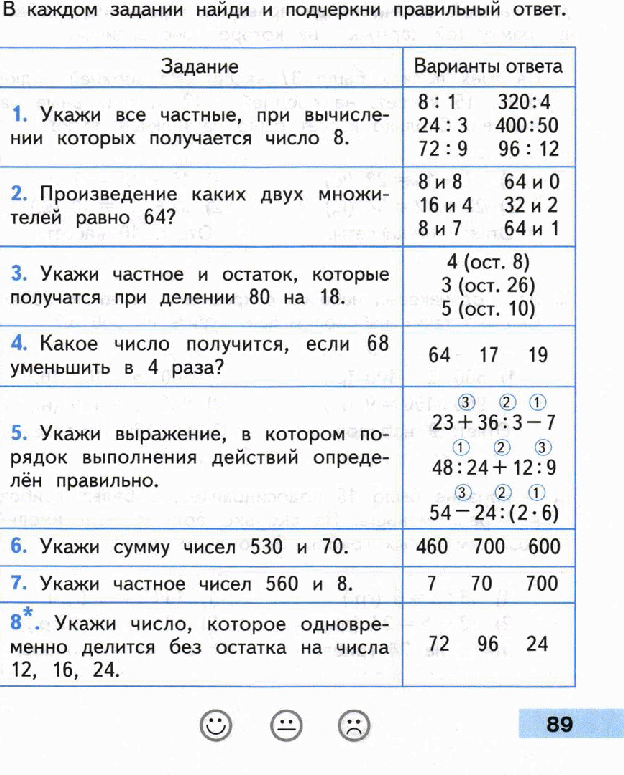 В каждом задании найди и подчеркни правильный ответ.
Задание
Варианты ответа
1. Укажи все частные, при вычисле-
нии которых получается число 8.
8 : 1 320:4
24 : 3 400:50
72 : 9 96 : 12
2. Произведение каких двух множи-
телей равно 64?
8 и 8 64 и 0
16 и 4 32 и 2
8 и 7 64 и 1
3. Укажи частное и остаток, которые
получатся при делении 80 на 18.
4 (ост. 8)
3 (ост. 26)
5 (ост. 10)
4. Какое число получится, если 68
уменьшить в 4 раза?
64 17 19
5. Укажи выражение, в котором по-
рядок выполнения действий опреде-
лён правильно.
3 2 1
23 + 36 : 3 − 7
1 2 3
48 : 24 + 12 : 9
3 2 1
54 − 24 : (2 · 6)
6. Укажи сумму чисел 530 и 70.
460 700 600
7. Укажи частное чисел 560 и 8.
7 70 700
8*. Укажи число, которое одновре-
менно делится без остатка на числа
12, 16, 24.
72 96 24
89